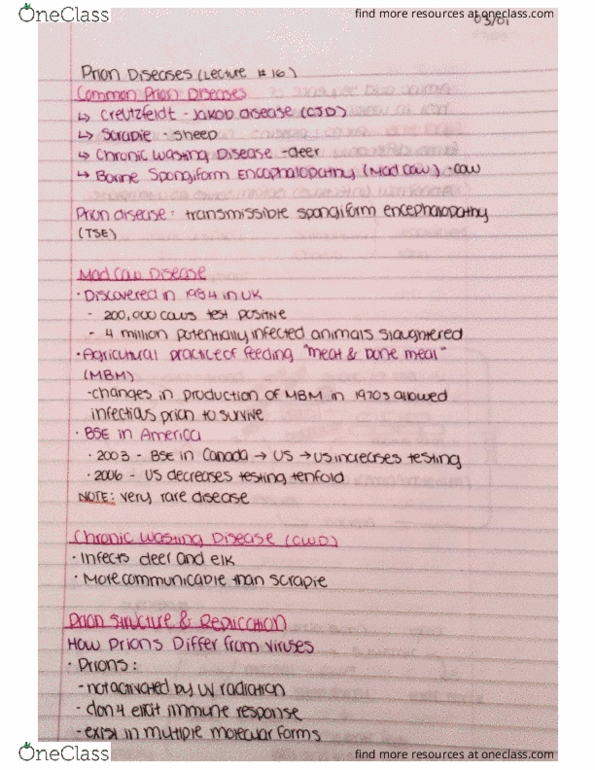 OneClass
find more resources at oneclass.com
03/01
Prion Diseases (Lecture #16)
Common Prion Diseases
↳ Creutzfeldt - Jakob disease (CJD)
↳ Scrapie - sheep
↳ Chronic Wasting Disease - deer
↳ Bovine Spongiform Encephalopathy (Mad Cow) - cow
Prion disease - transmissible spongiform encephalopathy
(TSE)
Mad Cow Disease
· Discovered in 1984 in UK
- 200,000 cows test positive
- 4 million potentially infected animals slaughtered
· Agricultural practice of feeding "meat & bone meal"
(MBM)
- changes in production of MBM in 1970s allowed
infectious prion to survive
· BSE in America
· 2003 - BSE in Canada → US → US increases testing
· 2006 - US decreases testing tenfold
NOTE: very rare disease
Chronic Wasting Disease (CWD)
· Infects deer and elk
· More communicable than scrapie
Prion Structure & Replication
How Prions Differ from Viruses
· Prions:
- not activated by UV radiation
- don't elicit immune response
- exist in multiple molecular forms
OneClass
find more resources at oneclass.com